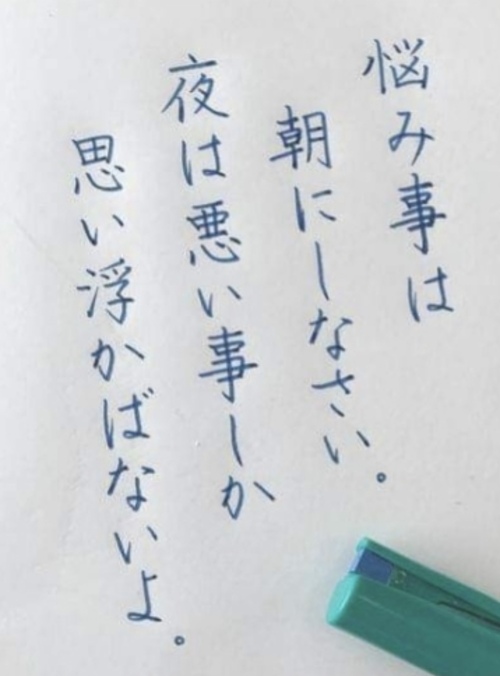 悩み事は
朝にしなさい。
夜は悪い事しか
思い浮かばないよ。